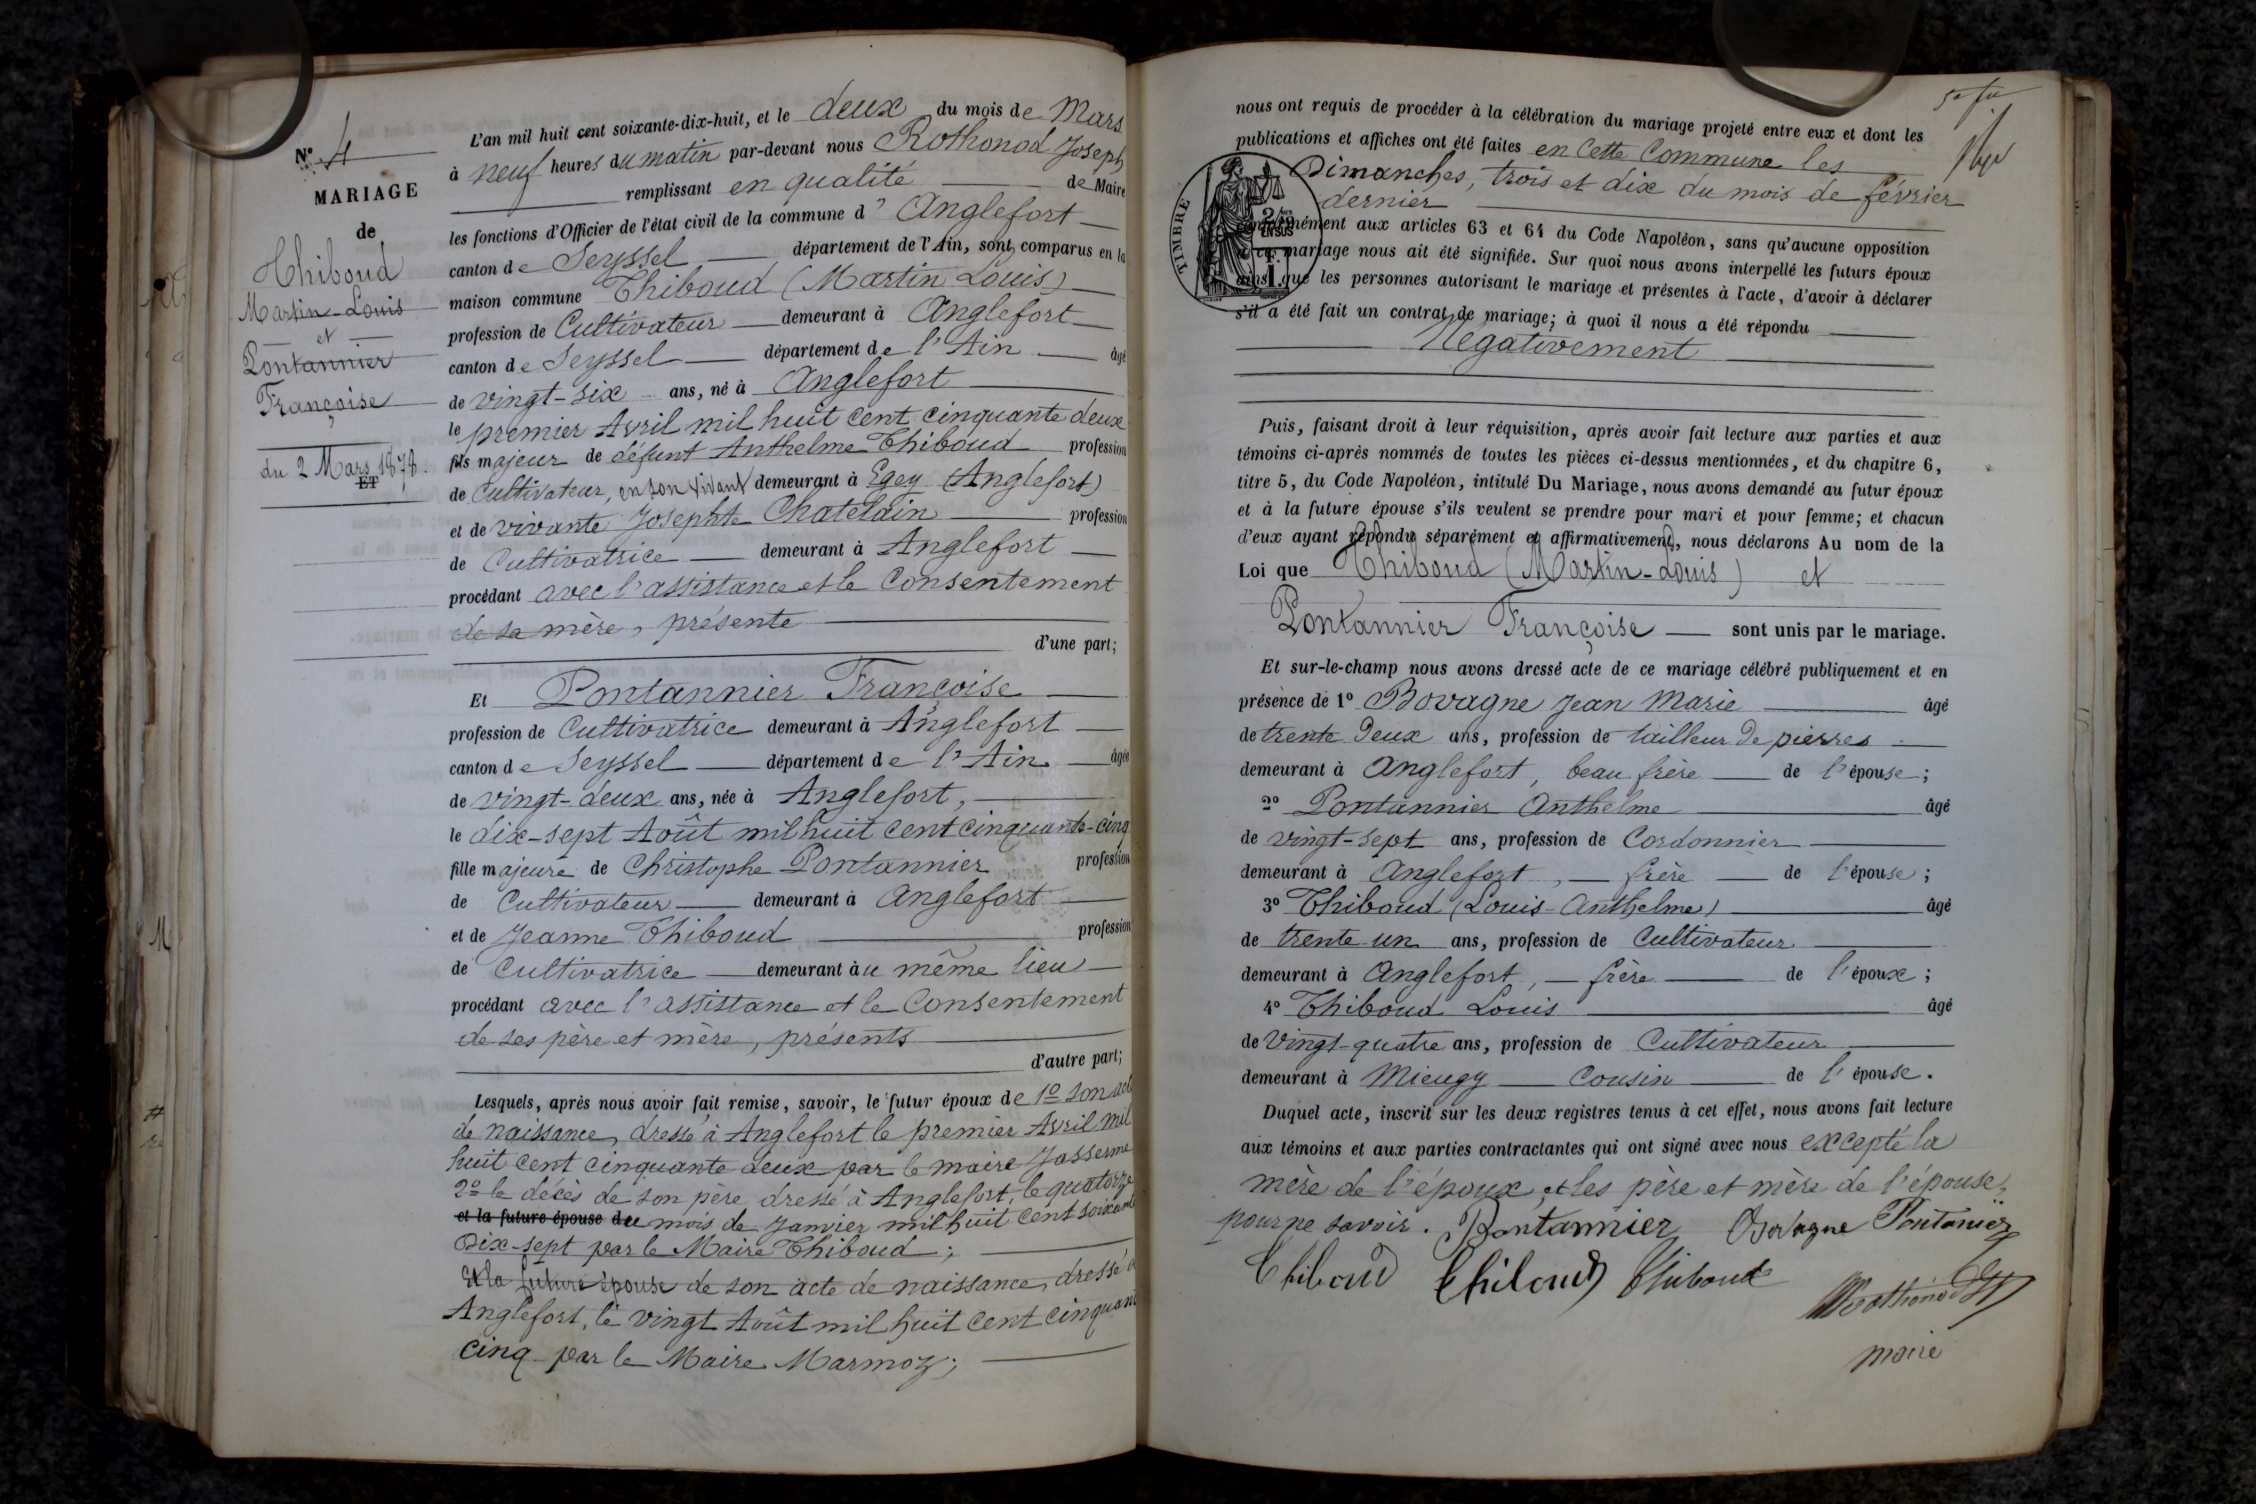 N° 4
MARIAGE
de
Thiboud
Martin-Louis
et
Pontannier
Françoise
du 2 Mars 1878.
ET
L'an mil huit cent soixante-dix-huit, et le deux du mois de Mars
à neuf heures du matin par-devant nous Rothonod Joseph
remplissant en qualité de Maire
les fonctions d'Officier de l'état civil de la commune d'Anglefort
canton de Seyssel département de l'Ain, sont comparus en la
maison commune Thiboud (Martin Louis)
profession de Cultivateur demeurant à Anglefort
canton de Seyssel département de l'Ain âgé
de vingt-six ans, né à Anglefort
le premier Avril mil huit cent cinquante deux
fils majeur de défunt Anthelme Thiboud profession
de Cultivateur, en son vivant demeurant à Egey (Anglefort)
et de vivante Josephte Chatelain profession
de Cultivatrice demeurant à Anglefort
procédant avec l'assistance et le Consentement
de sa mère, présente
d'une part;
Et Pontannier Françoise
profession de Cultivatrice demeurant à Anglefort
canton de Seyssel département de l'Ain âgée
de vingt-deux ans, née à Anglefort,
le dix-sept Août mil huit cent cinquante-cinq
fille majeure de Christophe Pontannier profession
de Cultivateur demeurant à Anglefort
et de Jeanne Thiboud profession
de Cultivatrice demeurant au même lieu
procédant avec l'assistance et le Consentement
de ses père et mère, présents
d'autre part;
Lesquels, après nous avoir fait remise, savoir, le futur époux de 1° son acte
de naissance, dressé à Anglefort le premier Avril mil
huit cent cinquante deux par le maire Jasserme
2° le décès de son père dressé à Anglefort, le quatorze
et la future épouse du mois de Janvier mil huit cent soixante
Dix-sept par le Maire Thiboud;
Et la future épouse de son acte de naissance, dressé à
Anglefort, le vingt Août mil huit cent cinquante
cinq par le Maire Marmoz;
nous ont requis de procéder à la célébration du mariage projeté entre eux et dont les
publications et affiches ont été faites en cette Commune les
Dimanches, trois et dix du mois de février
dernier
conformément aux articles 63 et 64 du Code Napoléon, sans qu'aucune opposition
à ce mariage nous ait été signifiée. Sur quoi nous avons interpellé les futurs époux
ainsi que les personnes autorisant le mariage et présentes à l'acte, d'avoir à déclarer
s'il a été fait un contrat de mariage; à quoi il nous a été répondu
Négativement
TIMBRE
Puis, faisant droit à leur réquisition, après avoir fait lecture aux parties et aux
témoins ci-après nommés de toutes les pièces ci-dessus mentionnées, et du chapitre 6,
titre 5, du Code Napoléon, intitulé Du Mariage, nous avons demandé au futur époux
et à la future épouse s'ils veulent se prendre pour mari et pour femme; et chacun
d'eux ayant répondu séparément et affirmativement, nous déclarons Au nom de la
Loi que Thiboud (Martin-Louis) et
Pontannier Françoise sont unis par le mariage.
Et sur-le-champ nous avons dressé acte de ce mariage célébré publiquement et en
présence de 1° Bovagne Jean Marie âgé
de trente Deux ans, profession de tailleur de pierres
demeurant à Anglefort, beau frère de l'épouse;
2° Pontannier Anthelme âgé
de vingt-sept ans, profession de Cordonnier
demeurant à Anglefort, frère de l'épouse;
3° Thiboud (Louis-Anthelme) âgé
de trente-un ans, profession de Cultivateur
demeurant à Anglefort, frère de l'époux;
4° Thiboud Louis âgé
de Vingt-quatre ans, profession de Cultivateur
demeurant à Mieugy Cousin de l'épouse.
Duquel acte, inscrit sur les deux registres tenus à cet effet, nous avons fait lecture
aux témoins et aux parties contractantes qui ont signé avec nous excepté la
mère de l'époux, et les père et mère de l'épouse,
pour ne savoir. Pontannier Bovagne Pontanier
Thiboud Thiboud Thiboud
Rothonod
maire